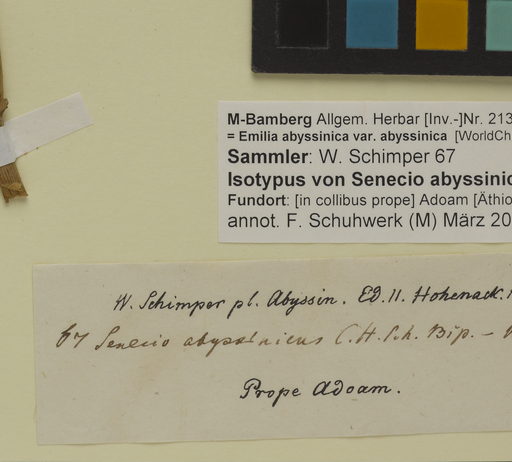 M-Bamberg Allgem. Herbar [Inv.-]Nr. 213
= Emilia abyssinica var. abyssinica [WorldCh
Sammler: W. Schimper 67
Isotypus von Senecio abyssinic
Fundort: [in collibus prope] Adoam [Äthio
annot. F. Schuhwerk (M) März 20
W. Schimper pl. Abyssin. Ed. II. Hohenack.
67 Senecio abyssinicus C.H.Sch. Bip. –
Prope Adoam.